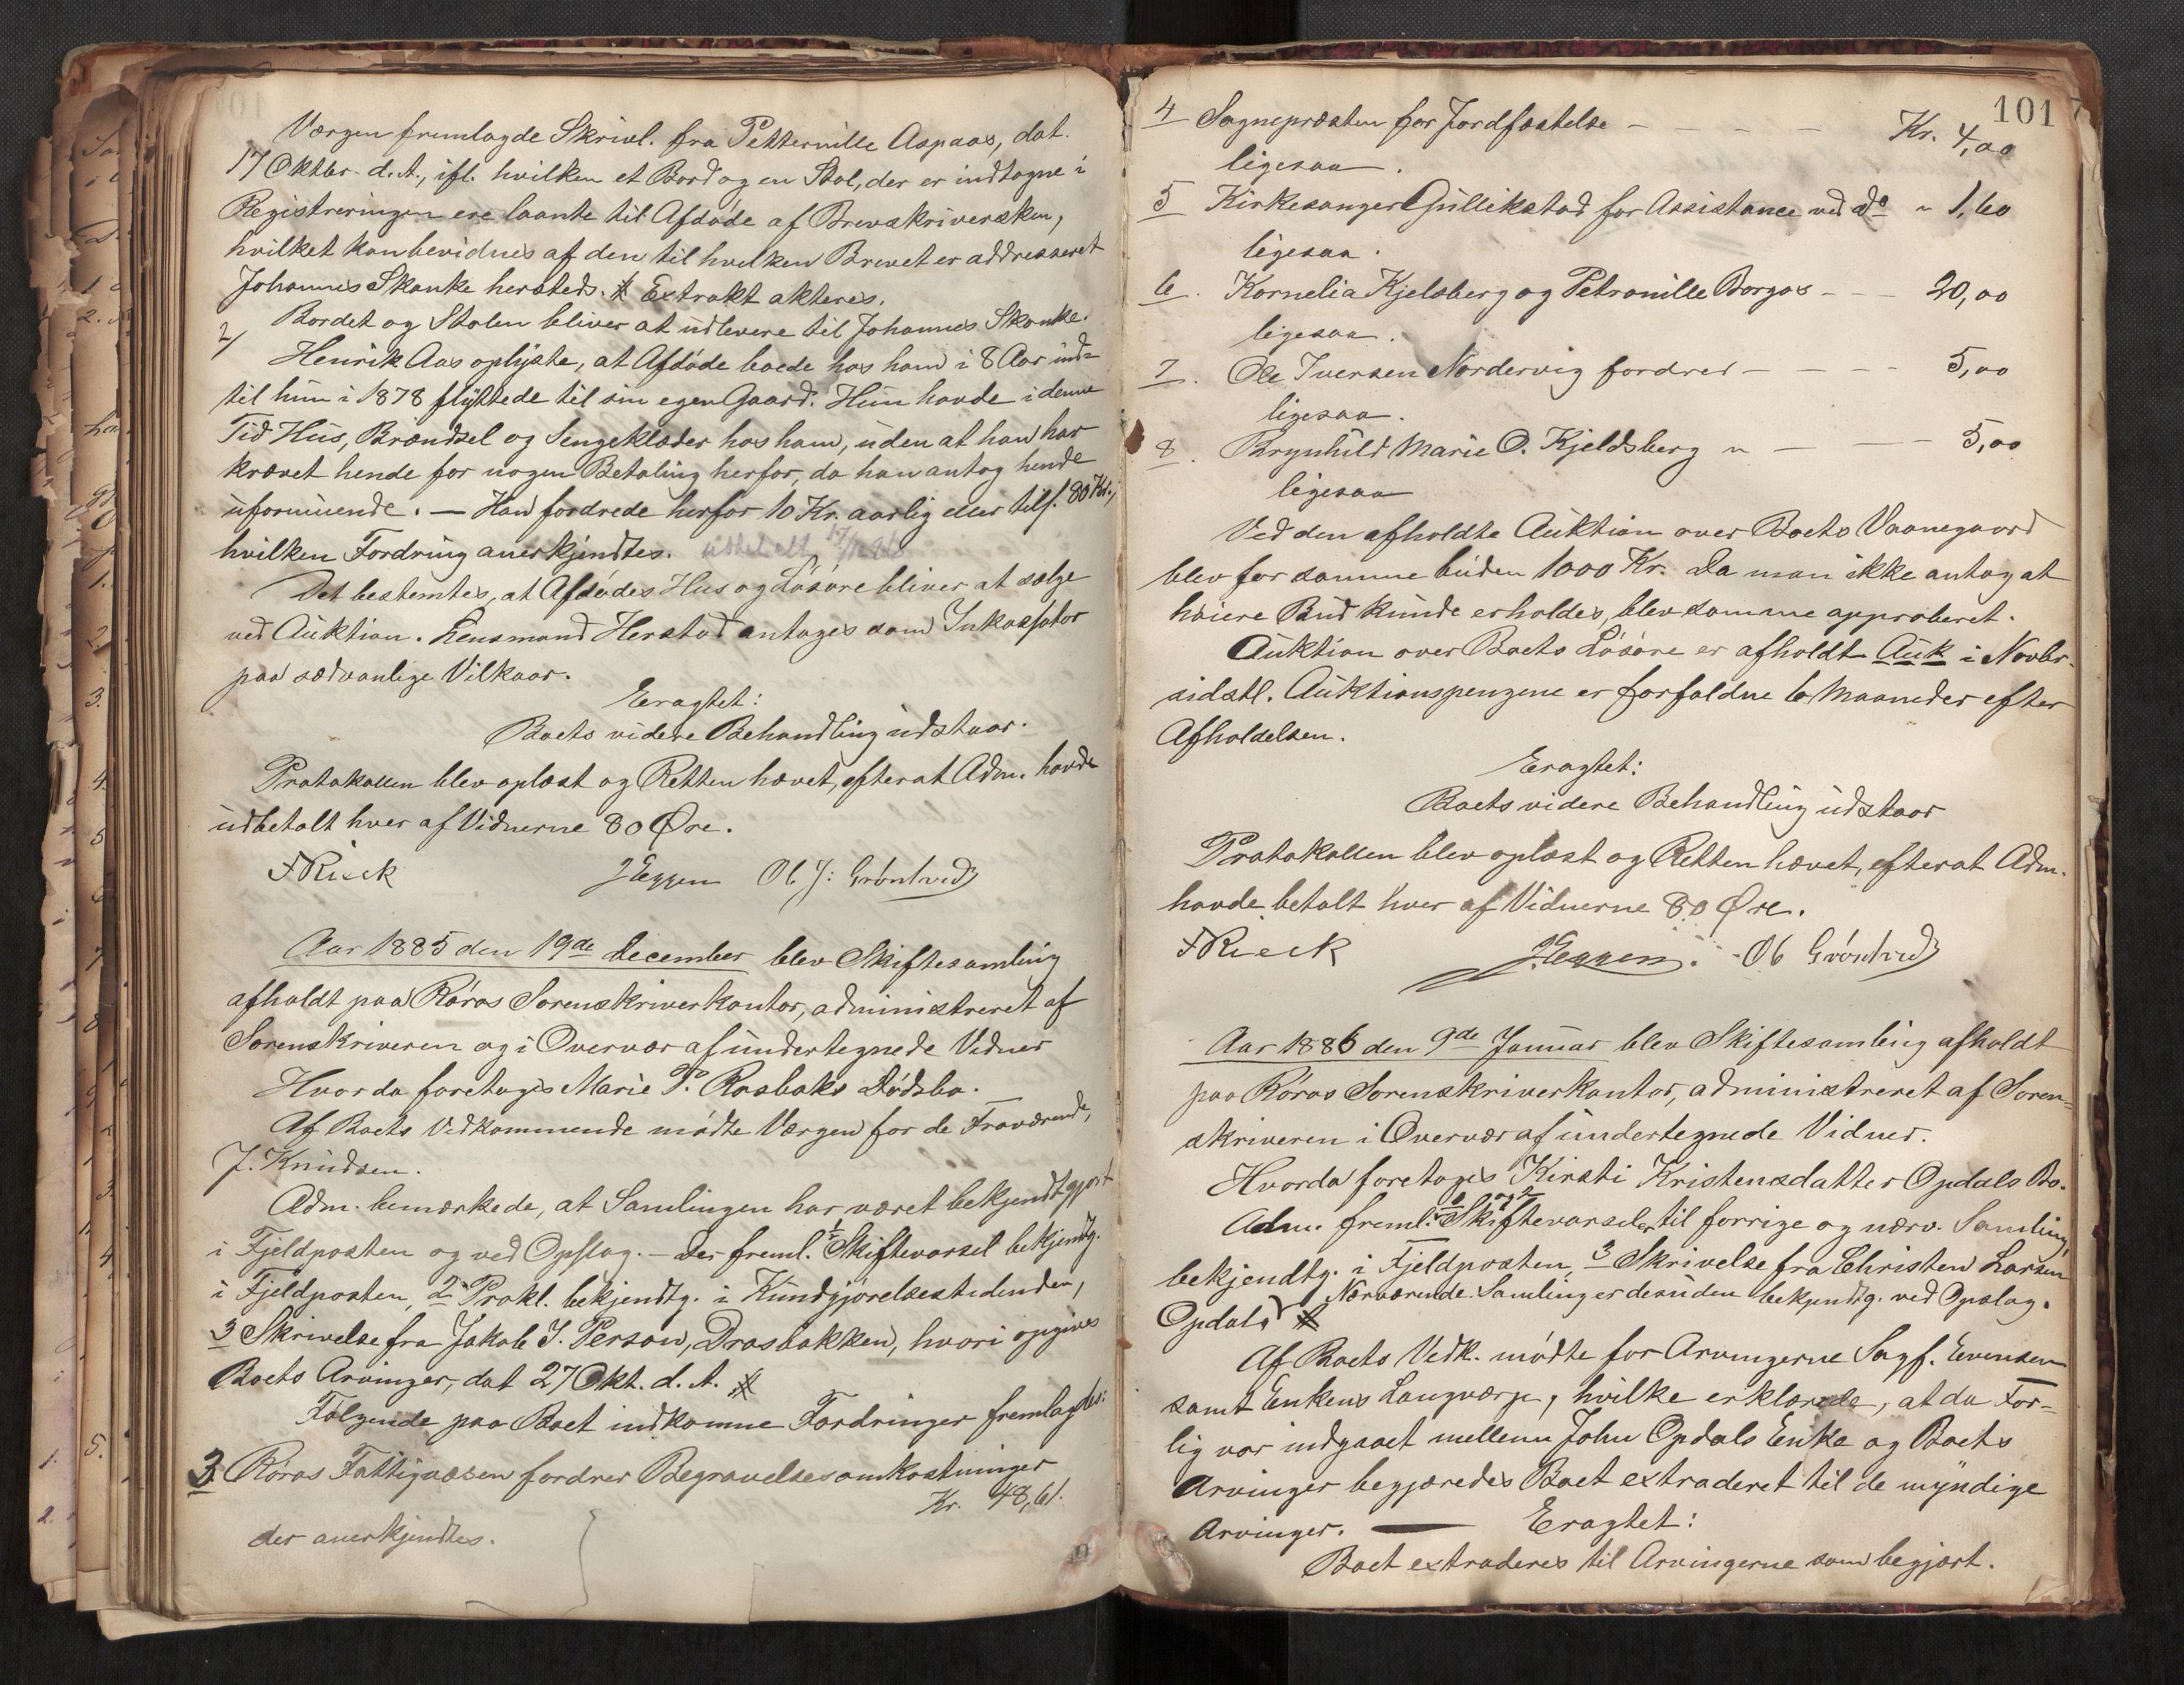 Værgen fremlagde Skrivl. fra Petternille Aspaas, dat.
17 Oktbr. d. A., ifl. hvilken et Bord og en Stol, der er indtagne i
Registreringen ere laante til Afdøde af Brevskriversken,
hvilket kan bevidnes af den til hvilken Brevet er addresseret
Johannes Skanke hersteds. # Extrakt akteres.
Bordet og Stolen bliver at udlevere til Johannes Skanke.
2/ Henrik Aas oplyste, at Afdøde boede hos ham i 8 Aar ind=
til hun i 1878 flyttede til sin egen Gaard. Hun havde i denne
Tid Hus, Brændsel og Sengeklæder hos ham, uden at han har
krævet hende for nogen Betaling herfor, da han antog hende
uformuende. — Han fordrede herfor 10 Kr. aarlig eller tils. 80 Kr.,
hvilken Fordring anerkjendtes. udbetalt
Det bestemtes, at Afdødes Hus og Løsøre bliver at sælge
ved Auktion. Lensmand Herstad antages som Inkassator
paa sædvanlige Vilkaar.
Eragtet:
Boets videre Behandling udstaar.
Protokollen blev oplæst og Retten hævet, efterat Adm. havde
udbetalt hver af Vidnerne 80 Øre.
F Rieck J Eggen Ol J: Grøntvedt
Aar 1885 den 19de December blev Skiftesamling
afholdt paa Røros Sorenskriverkontor, administreret af
Sorenskriveren og i Overvær af undertegnede Vidner
Hvorda foretages Marie P. Rasbaks Dødsbo.
Af Boets Vedkommende mødte Værgen for de Fraværende,
J. Knudsen.
Adm. bemærkede, at Samlingen har været bekjendtgjort
i Fjeldposten og ved Opslag. — Der freml. 1 Skiftevarsel bekjendtg.
i Fjeldposten, 2 Prokl. bekjendtg. i Kundgjørelsestidenden,
3 Skrivelse fra Jakob J. Person, Drasbakken, hvori opgives
Boets Arvinger, dat 27 Okt. d. A. #
Følgende paa Boet indkomne Fordringer fremlagdes:
3 Røros Fattigvæsen fordrer Begravelsesomkostninger
Kr. 48,61.
der anerkjendtes.
101
4 Sognepræsten for Jordfæstelse — — — — Kr. 4,00
ligesaa.
5 Kirkesanger Gullikstad for Assistance ved do " 1,60
ligesaa.
6. Kornelia Kjelsberg og Petronille Borgos — — 20,00
ligesaa.
7. Ole Iversen Nordervig fordrer — — — — 5,00
ligesaa.
8. Brynhild Marie O. Kjeldsberg " — — — 5,00
ligesaa
Ved den afholdte Auktion over Boets Vaanegaard
blev for samme buden 1000 Kr. Da man ikke antog at
høiere Bud kunde erholdes, blev samme approberet.
Auktion over Boets Løsøre er afholdt Auk i Novbr.
sidstl. Auktionspengene er forfaldne 6 Maaneder efter
Afholdelsen.
Eragtet:
Boets videre Behandling udstaar
Protokollen blev oplæst og Retten hævet, efterat Adm.
havde betalt hver af Vidnerne 80 Øre.
F Rieck J. Eggen. Ol Grøntvedt
Aar 1886 den 9de Januar blev Skiftesamling afholdt
paa Røros Sorenskriverkontor, administreret af Soren=
skriveren i Overvær af undertegnede Vidner.
Hvorda foretages Kirsti Kristensdatter Opdals Bo.
Adm. freml. 1 og 2 Skiftevarseler til forrige og nærv. Samling,
bekjendtg. i Fjeldposten, 3 Skrivelse fra Christen Larsen
Opdal, # Nærværende Samling er desuden bekjendtg. ved Opslag.
Af Boets Vedk. mødte for Arvingerne Sagf. Evensen
samt Enkens Laugværge, hvilke erklærede, at da For=
lig var indgaaet mellem John Opdals Enke og Boets
Arvinger begjæredes Boet extraderet til de myndige
Arvinger. — Eragtet:
Boet extraderes til Arvingerne som begjært.